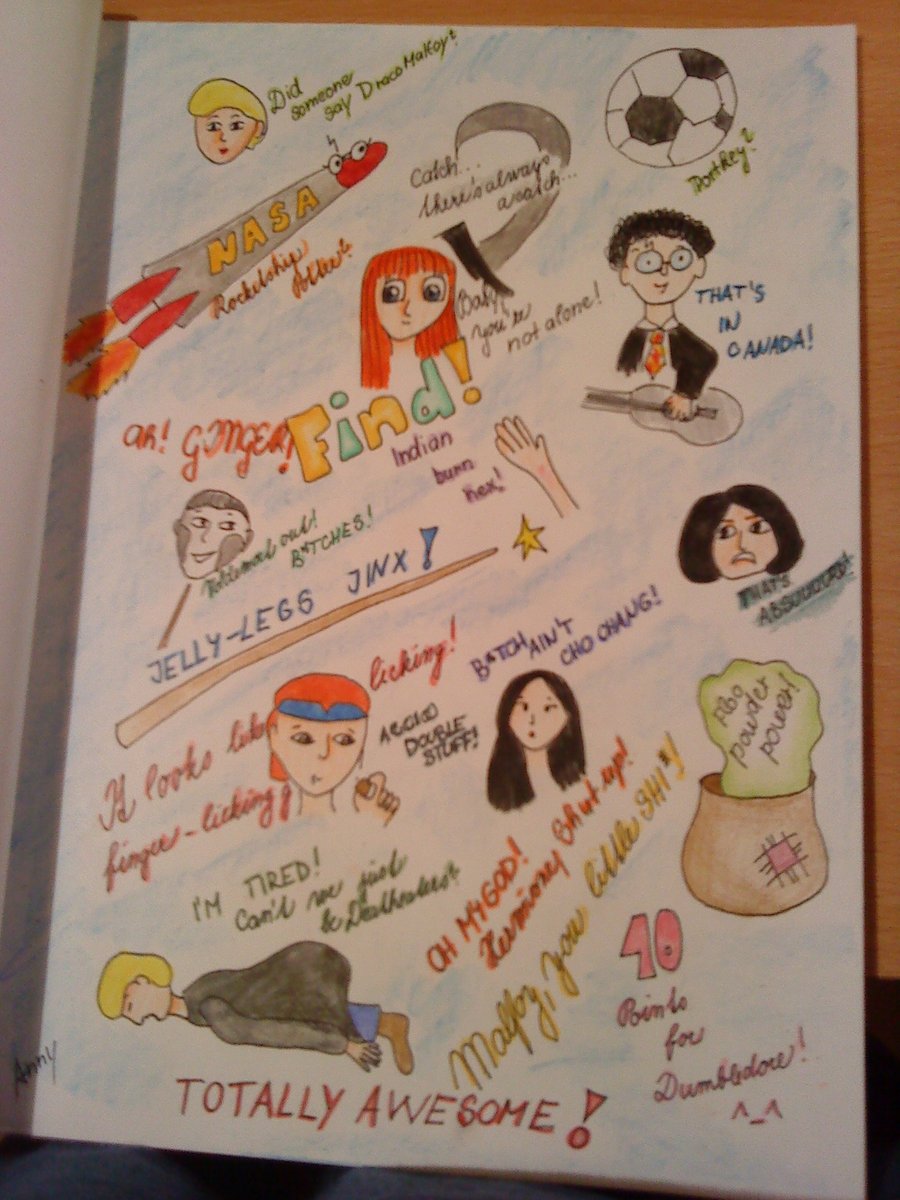 Did
someone
say Draco Malfoy?
NASA
Rocketship
Potter?
Catch...
there's always
a catch...
Portkey?
Baby,
you're
not alone!
THAT'S
IN
CANADA!
Find!
AH! GINGER!
Indian
burn
hex!
Voldemort out!
B*TCHES!
JELLY-LEGS JINX!
THAT'S
ABSUUUURD!
B*TCH AIN'T
CHO CHANG!
It looks like
finger-licking
licking!
ACCIO
DOUBLE
STUFF!
Floo
powder
power!
I'M TIRED!
Can't we just
be Deatheaters?
OH MY GOD!
Hermioney Shut up!
Malfoy, you little SHI*!
10
Points
for
Dumbledore!
^_^
Anny
TOTALLY AWESOME!